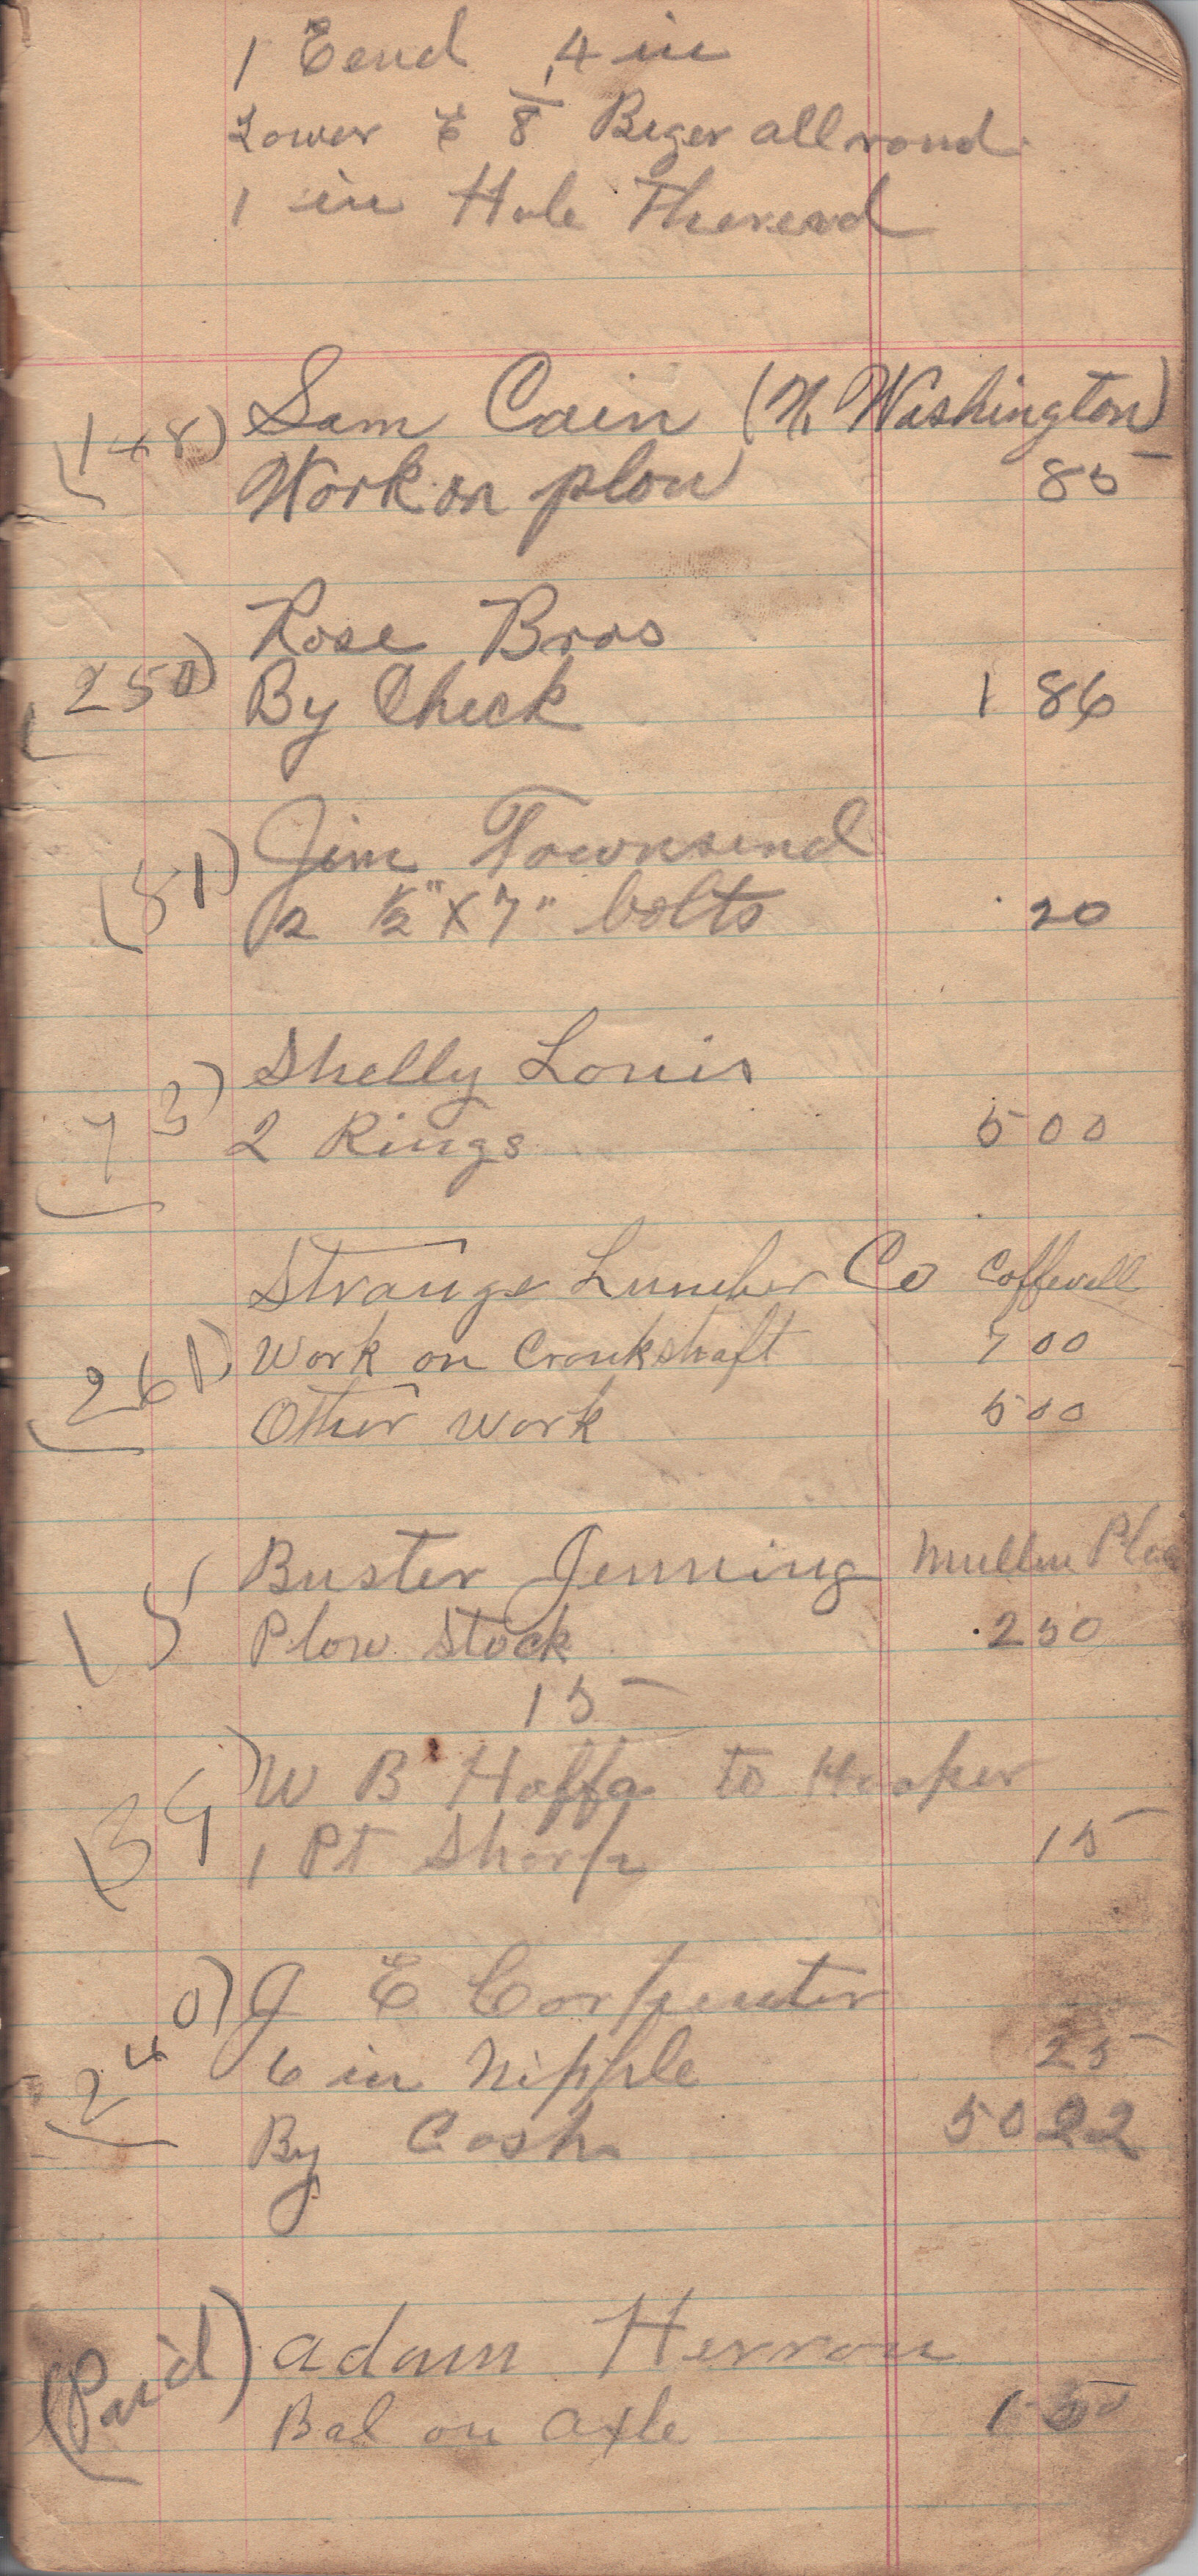 1 Eend 4 in
Lower E 1/8 Biger all round
1 in Hole Thererd
(148) Sam Cain (N. Washington)
Work on plow 85
Rose Bros
(250) By Check 1 86
Jim Townsend
(51) 2 1/2" X 7" bolts 20
Shelly Louis
(73) 2 Rings 5 00
Strange Lumber Co Coffevill
(261) Work on Crankshaft 7 00
Other work 5 00
Buster Jenning Mullin Place
(15 Plow Stock 2 50
15
W B Hoffa to Hooper
(39) 1 Pt Sharp 15
(240) J E Carpenter
6 in Nipple 25
By Cash 50 22
(Paid) Adam Herron
Bal on Axle 1 50